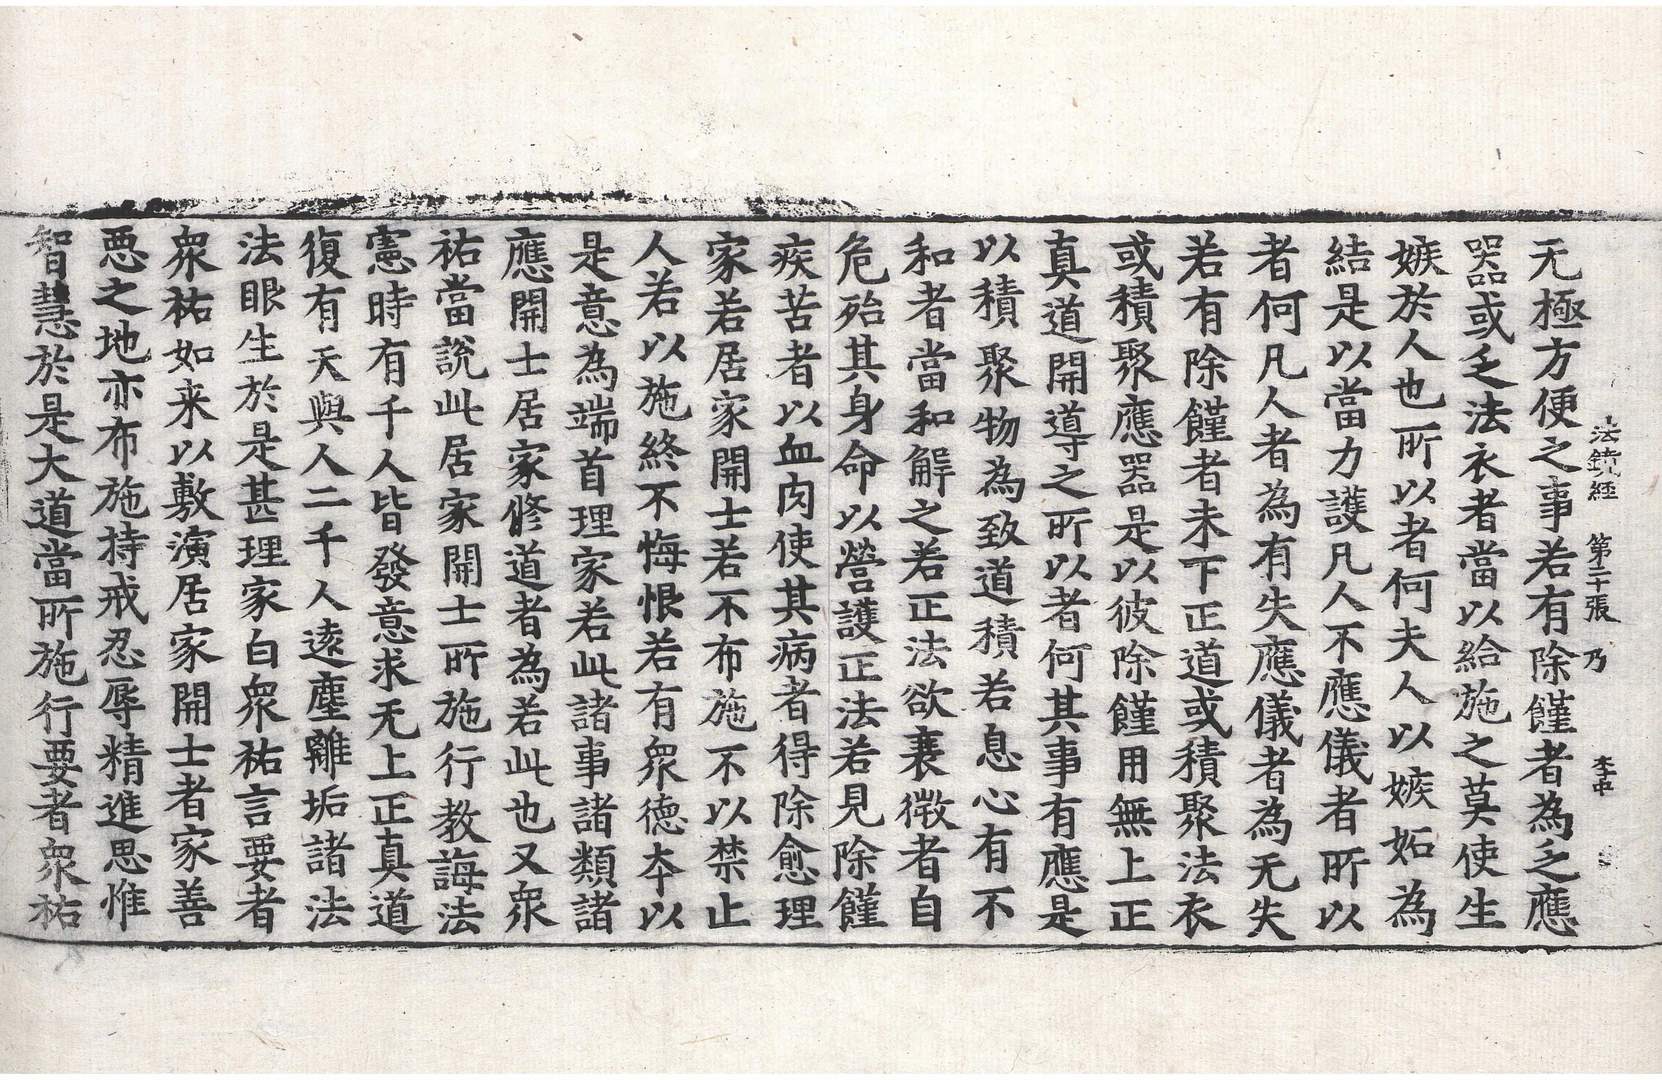 法鏡經　第二十張　乃　李中
无極方便之事若有除饉者為乏應
器或乏法衣者當以給施之莫使生
嫉於人也所以者何夫人以嫉妬為
結是以當力護凡人不應儀者所以
者何凡人者為有失應儀者為无失
若有除饉者未下正道或積聚法衣
或積聚應器是以彼除饉用無上正
真道開導之所以者何其事有應是
以積聚物為致道積若息心有不
和者當和解之若正法欲衰微者自
危殆其身命以營護正法若見除饉
疾苦者以血肉使其病者得除愈理
家若居家開士若不布施不以禁止
人若以施終不悔恨若有衆德夲以
是意為端首理家若此諸事諸類諸
應開士居家修道者為若此也又衆
祐當說此居家開士所施行教誨法
憲時有千人皆發意求无上正真道
復有天與人二千人遠塵離垢諸法
法眼生於是甚理家白衆祐言要者
衆祐如来以敷演居家開士者家善
悪之地亦布施持戒忍辱精進思惟
智慧於是大道當所施行要者衆祐